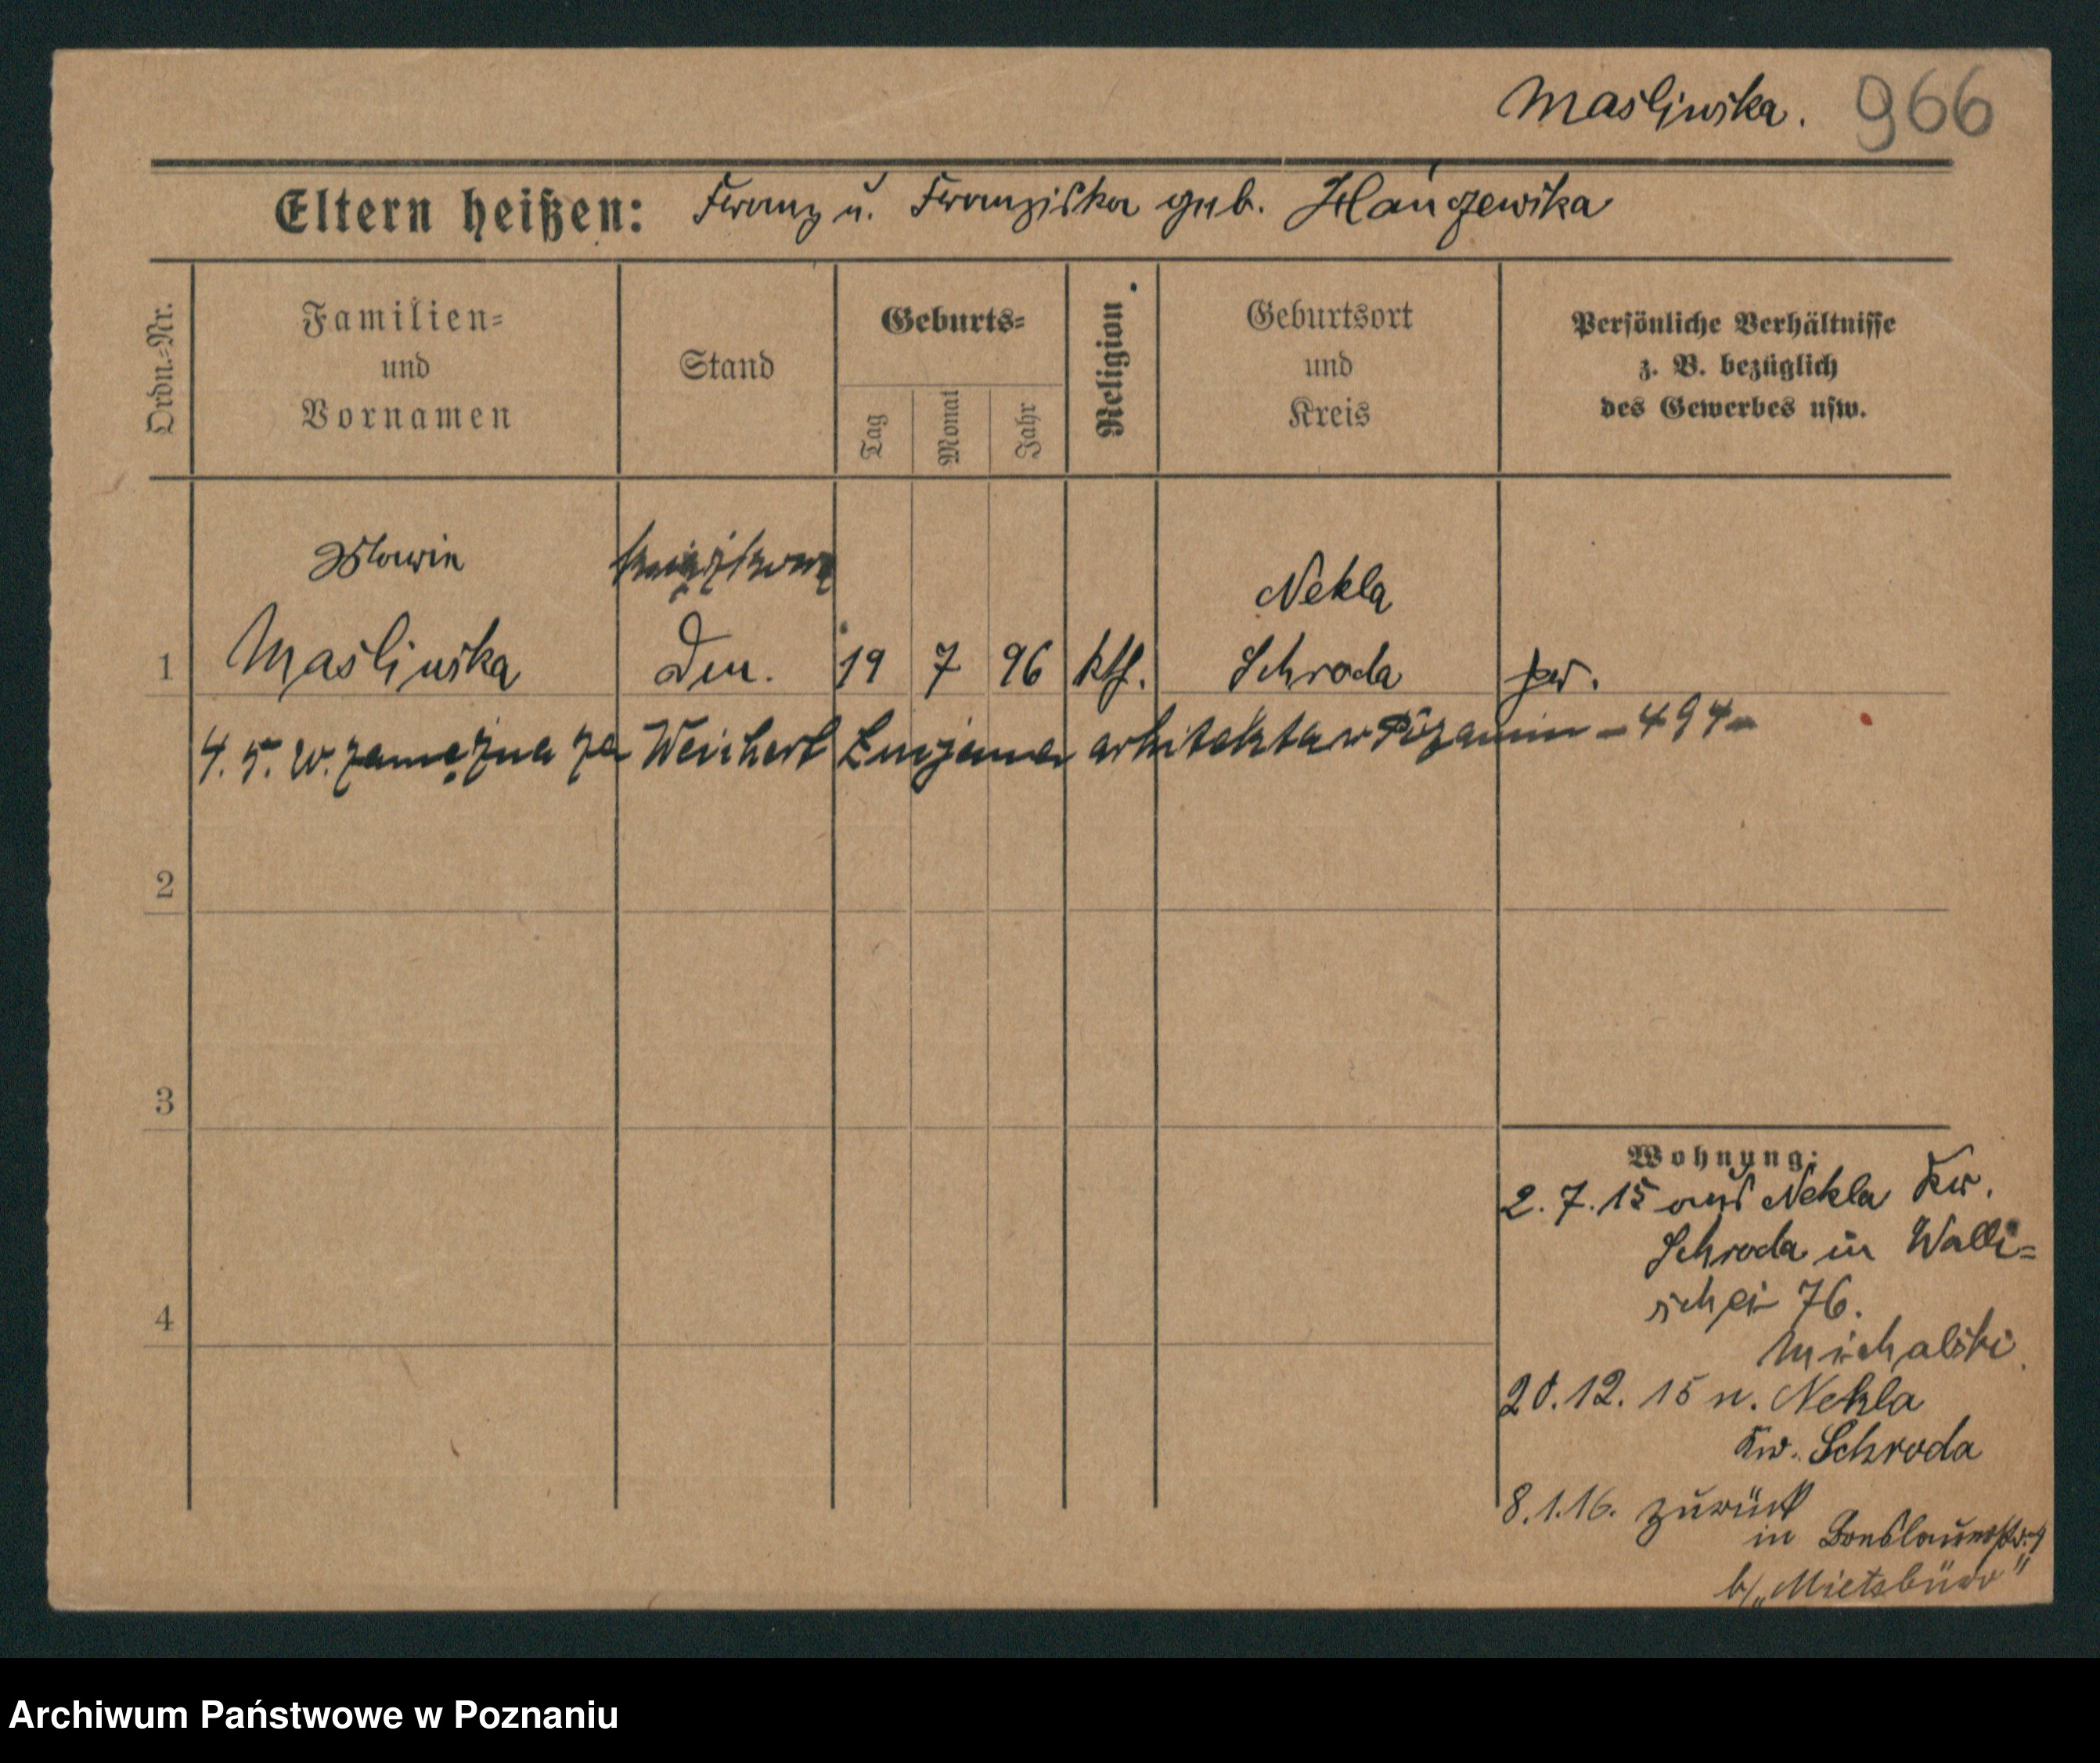 Maśliwska. 966
Eltern heißen: Franz u. Franziska geb. Hańczewska
Ordn.-Nr.
Familien-
und
Vornamen
Stand
Geburts-
Tag
Monat
Jahr
Religion
Geburtsort
und
Kreis
Persönliche Verhältnisse
z. B. bezüglich
des Gewerbes usw.
Nekla
1 Masliwska 19 7 96 kth. Schroda
4. 5. w. zamężna za Weichert Lucjana arhitekta w Pozaniu - 494 -
2
3
4
Wohnung:
2. 7. 15 aus Nekla Kr.
Schroda in Walli=
schei 76.
Michalski
20. 12. 15 n. Nekla
Kr. Schroda
8. 1. 16. zurück
in Breslauerstr. 9
b/ „Mietsbüro"
Archiwum Państwowe w Poznaniu